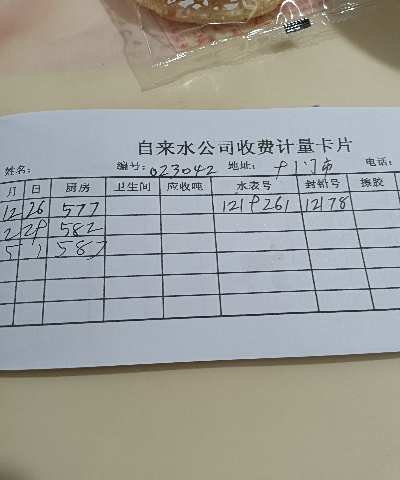 自来水公司收费计量卡片
姓名: 编号: 023042 地址: 门市 电话:
月 日 厨房 卫生间 应收吨 水表号 封铅号 擦胶
12 26 577 12178
2 29 582
5 1 587